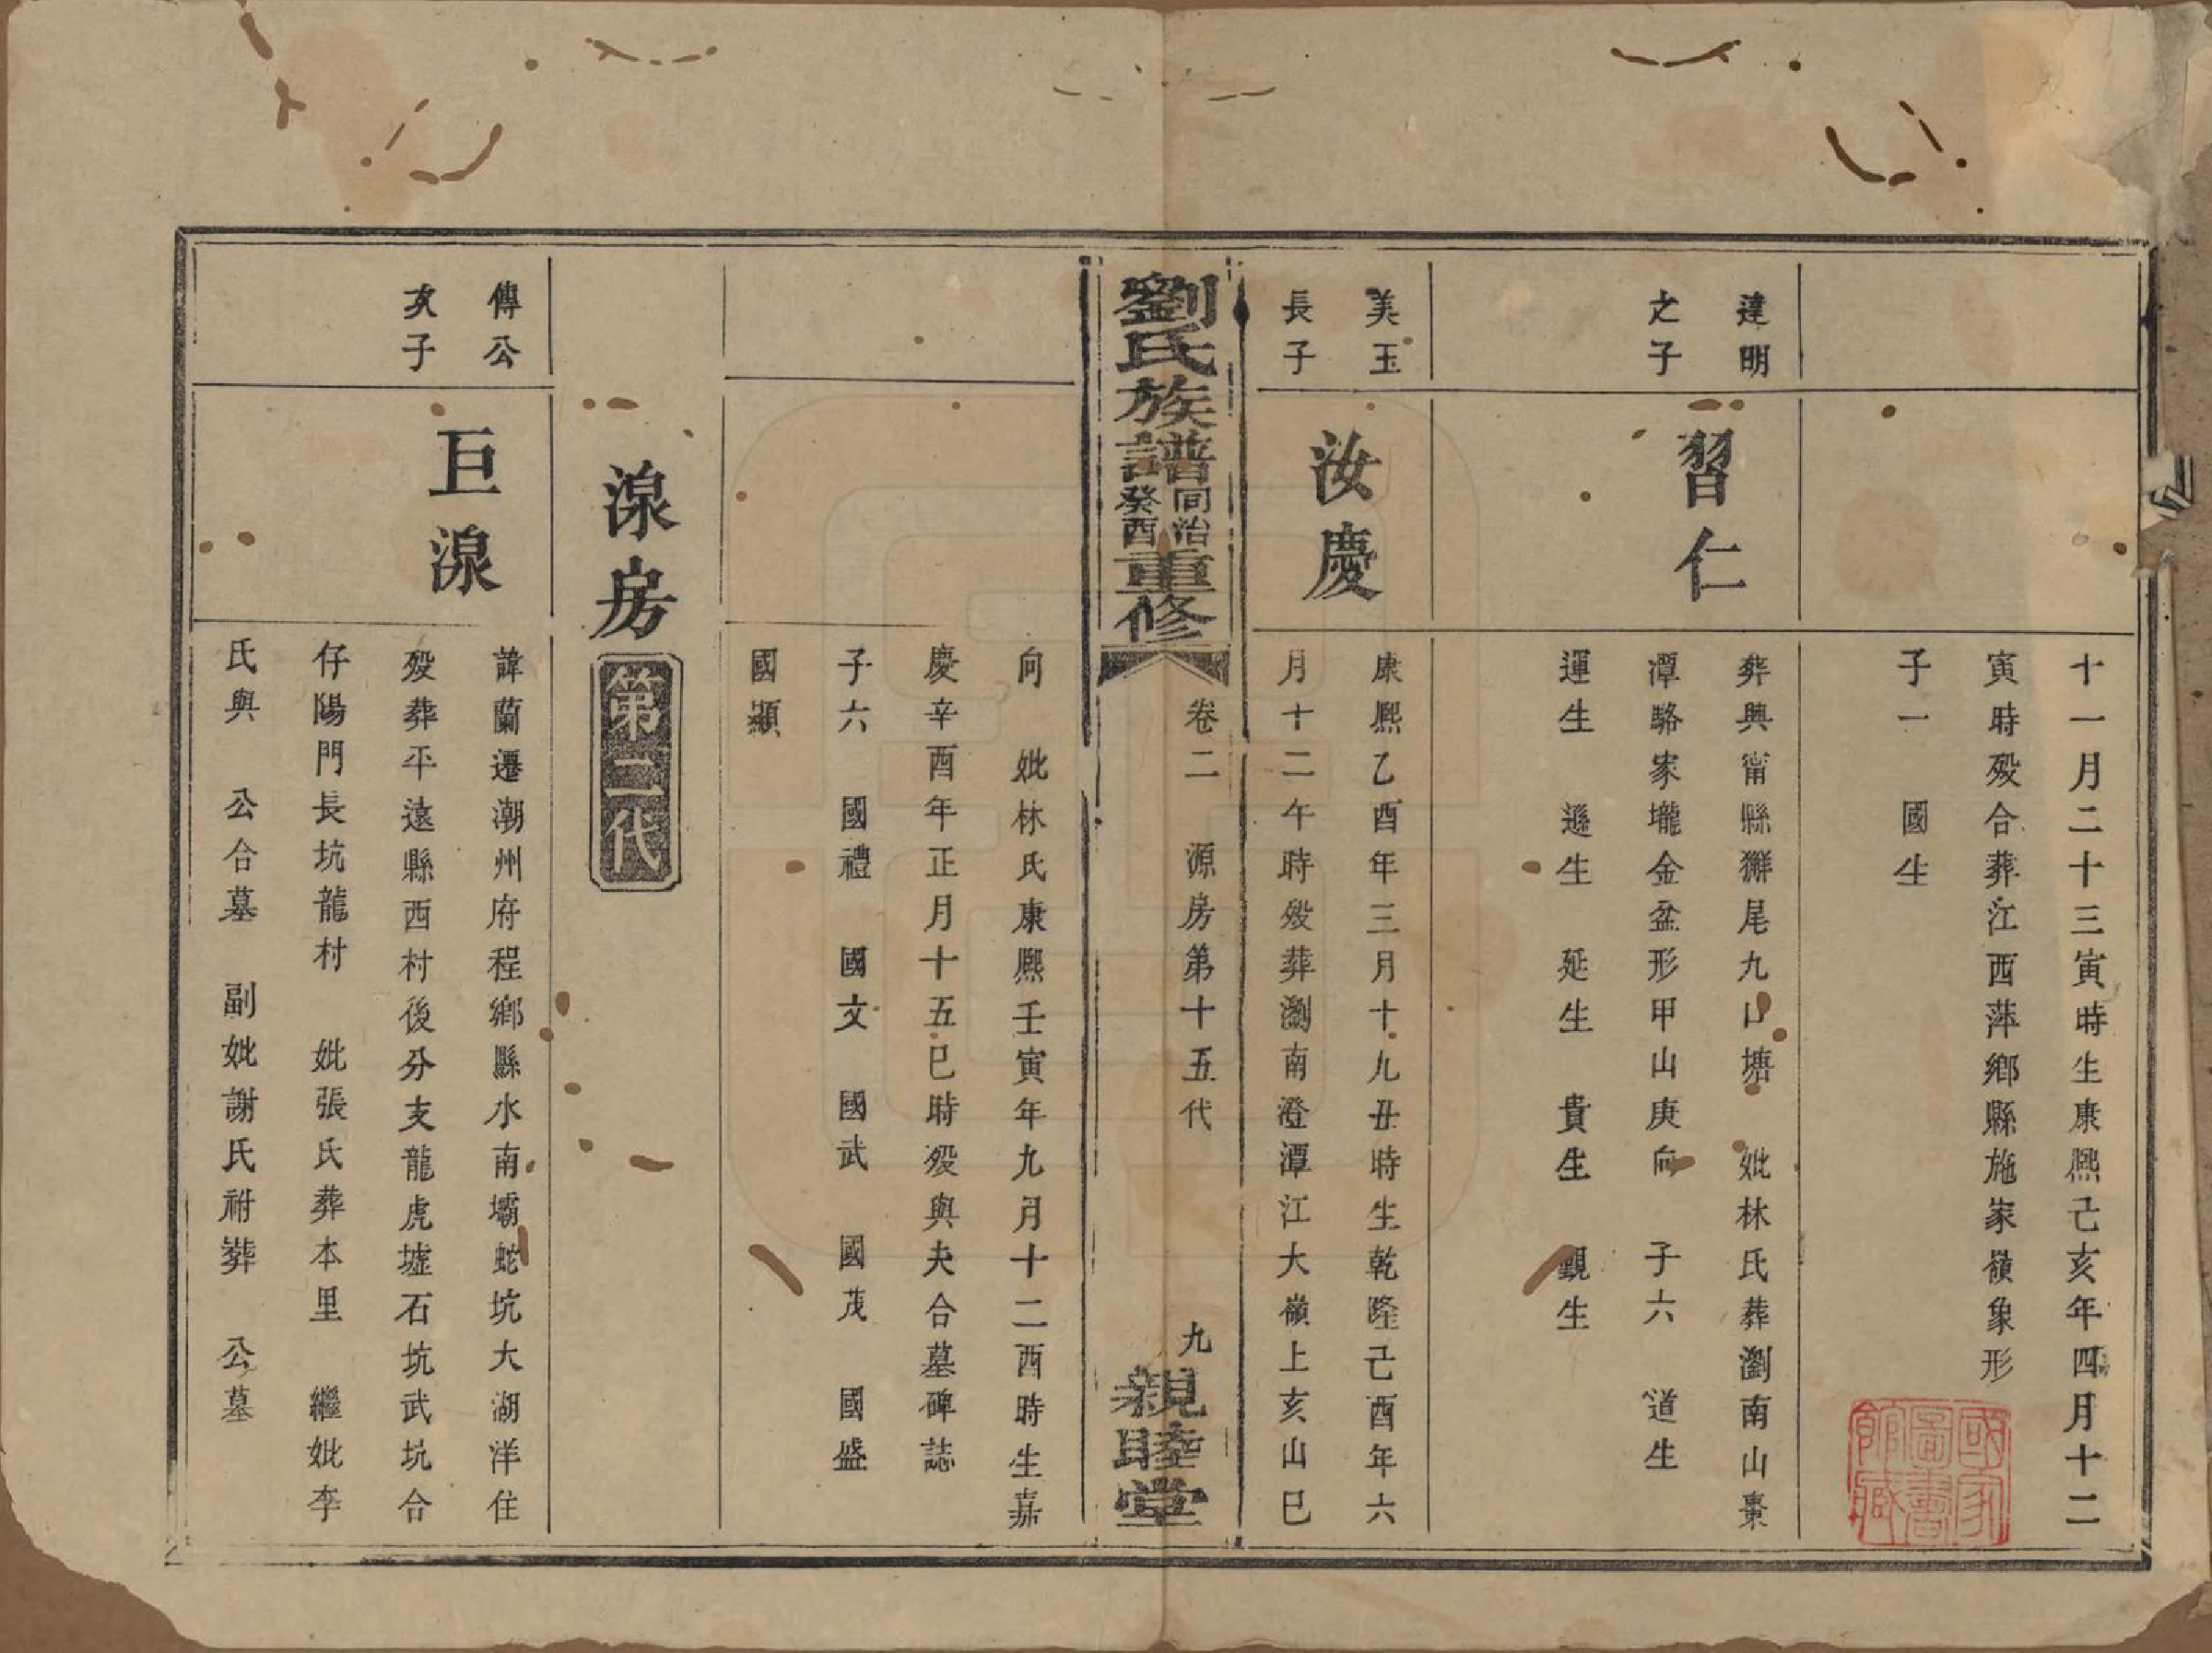 十一月二十三寅時生康熙己亥年四月十二
寅時歿合葬江西萍鄉縣施家嶺象形
子一 國生
達明
之子
習仁
葬興甯縣獬尾九山塘 妣林氏葬瀏南山棗
潭駱家壠金盆形甲山庚向 子六 道生
運生 遜生 延生 貴生 觀生
美玉
長子
汝慶
康熙乙酉年三月十九丑時生乾隆己酉年六
月十二午時歿葬瀏南澄潭江大嶺上亥山巳
劉氏族譜 同治癸酉 重修
卷二 源房第十五代 九
親睦堂
向 妣林氏康熙壬寅年九月十二酉時生嘉
慶辛酉年正月十五巳時歿與夫合墓碑誌
子六 國禮 國文 國武 國茂 國盛
國顯
湶房 第二代
傳公
次子
巨湶
諱蘭遷潮州府程鄉縣水南壩蛇坑大湖洋住
歿葬平遠縣西村後分支龍虎墟石坑武坑合
仔陽門長坑龍村 妣張氏葬本里 繼妣李
氏與 公合墓 副妣謝氏祔葬 公墓
國家圖書館藏